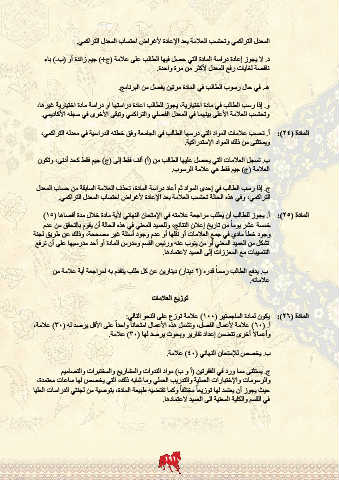 المعدل التراكمي وتحتسب العلامة بعد الإعادة لأغراض احتساب المعدل التراكمي.
د. لا يجوز إعادة دراسة المادة التي حصل فيها الطالب على علامة (ج+) جيم زائدة أو (ب-) باء
ناقصة لغايات رفع المعدل لأكثر من مرة واحدة.
هـ. في حال رسوب الطالب في المادة مرتين يفصل من البرنامج.
و. إذا رسب الطالب في مادة اختيارية، يجوز للطالب إعادة دراستها أو دراسة مادة اختيارية غيرها،
وتحتسب العلامة الأعلى بينهما في المعدل الفصلي والتراكمي وتبقى الأخرى في سجله الأكاديمي.
المادة (٢٤): أ. تحسب علامات المواد التي درسها الطالب في الجامعة وفق خطته الدراسية في معدله التراكمي،
ويستثنى من ذلك المواد الاستدراكية.
ب. تسجل العلامات التي يحصل عليها الطالب من (أ) ألف فقط إلى (ج) جيم فقط كحد أدنى، وتكون
العلامة (ج) جيم فقط هي علامة الرسوب.
ج. إذا رسب الطالب في إحدى المواد ثم أعاد دراسة المادة، تحذف العلامة السابقة من حساب المعدل
التراكمي، وفي هذه الحالة تحتسب العلامة بعد الإعادة لأغراض احتساب المعدل التراكمي.
المادة (٢٥): أ. يجوز للطالب أن يطلب مراجعة علامته في الامتحان النهائي لأية مادة خلال مدة أقصاها (١٥)
خمسة عشر يوماً من تاريخ إعلان النتائج، وللعميد المعني في هذه الحالة أن يقوم بالتحقق من عدم
وجود خطأ مادي في جمع العلامات أو نقلها أو عدم وجود أسئلة غير مصححة، وذلك عن طريق لجنة
تشكل من العميد المعني أو من ينوب عنه ورئيس القسم ومدرس المادة أو أحد مدرسيها على أن ترفع
التنسيبات مع المعززات إلى العميد لاعتمادها.
ب. يدفع الطالب رسماً قدره (٢ دينار) دينارين عن كل طلب يتقدم به لمراجعة أية علامة من
علاماته.
توزيع العلامات
المادة (٢٦): يكون لمادة الماجستير (١٠٠) علامة توزع على النحو التالي:
أ. (٦٠) علامة لأعمال الفصل، وتشمل هذه الأعمال امتحاناً واحداً على الأقل يرصد له (٣٠) علامة،
وأعمالاً أخرى تتضمن إعداد تقارير وبحوث يرصد لها (٣٠) علامة.
ب. يخصص للامتحان النهائي (٤٠) علامة.
ج. يستثنى مما ورد في الفقرتين (أ و ب) مواد الندوات والمشاريع والمختبرات والتصاميم
والرسومات والاختبارات العملية والتدريب العملي وما شابه ذلك، التي يخصص لها ساعات معتمدة،
حيث يجوز أن يعتمد لها توزيعاً مختلفاً وكما تقتضيه طبيعة المادة، بتوصية من لجنتي الدراسات العليا
في القسم والكلية المعنية الى العميد لاعتمادها.